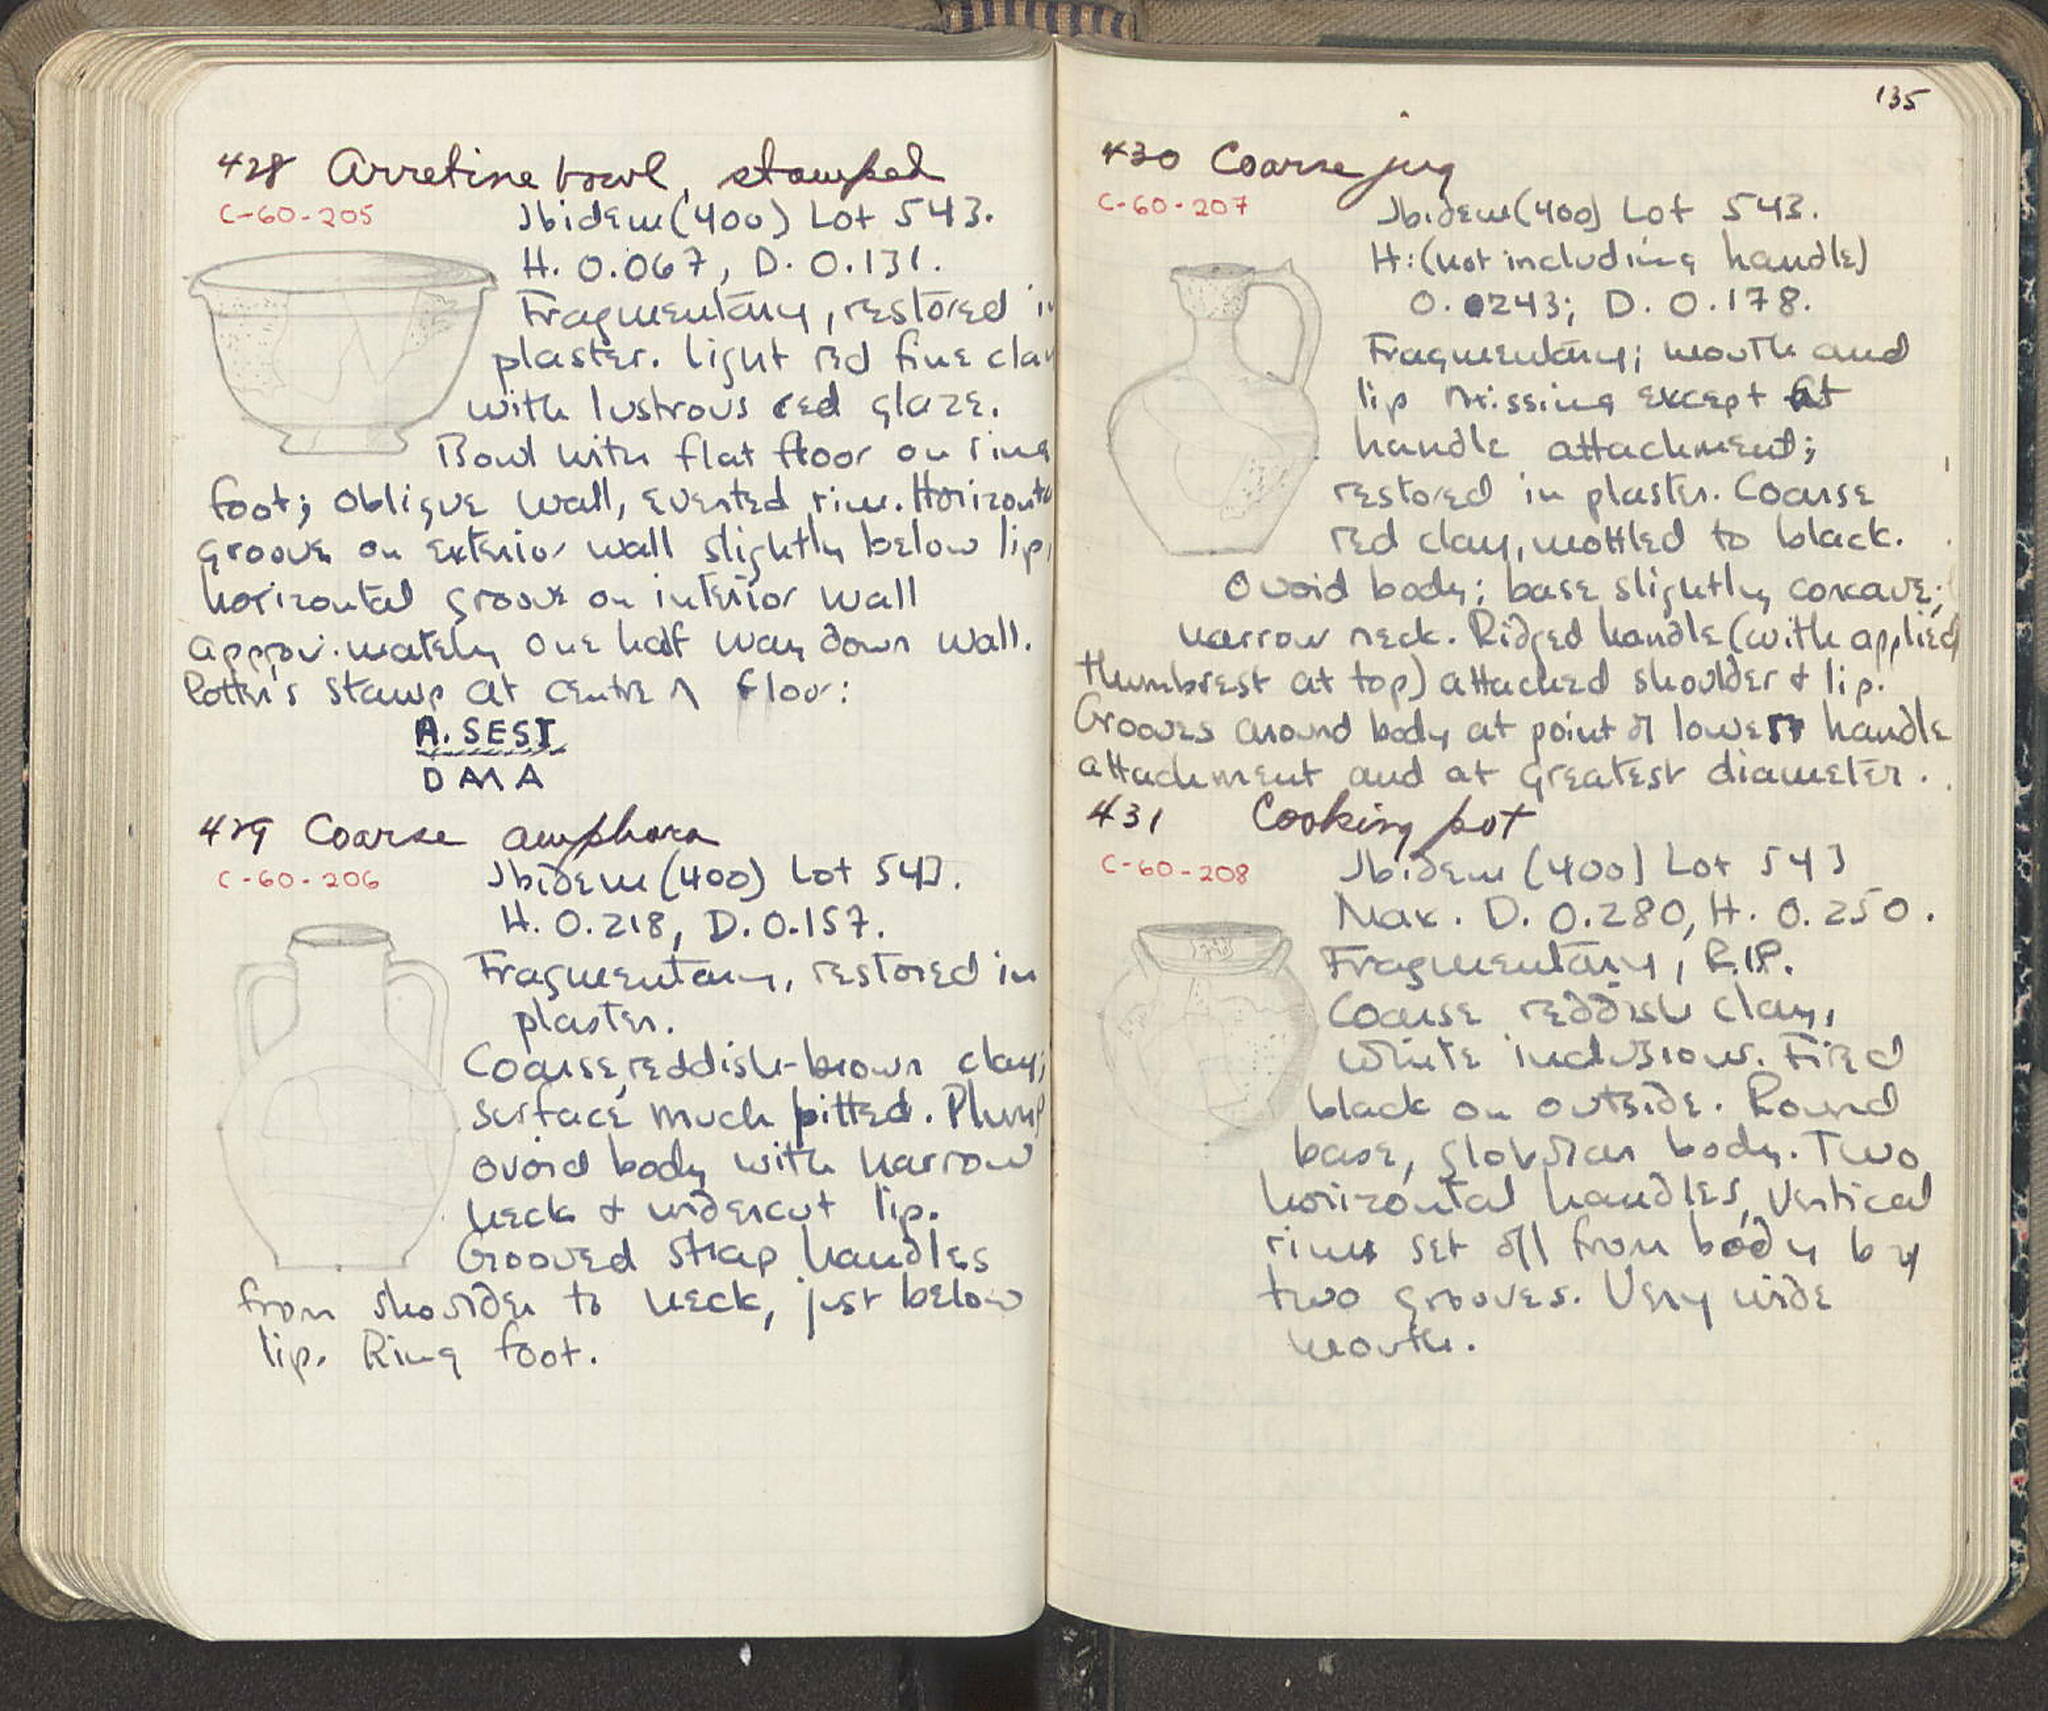 428 Arretine bowl, stamped
C-60-205
Ibidem (400) Lot 543.
H. 0.067, D. 0.131.
Fragmentary, restored in
plaster. Light red fine clay
with lustrous red glaze.
Bowl with flat floor on ring
foot; oblique wall, everted rim. Horizontal
groove on exterior wall slightly below lip,
horizontal groove on interior wall
approximately one half way down wall.
Potter's stamp at centre of floor:
A. SEST
DAMA
429 Coarse amphora
C-60-206
Ibidem (400) Lot 543.
H. 0.218, D. 0.157.
Fragmentary, restored in
plaster.
Coarse, reddish-brown clay;
surface much pitted. Plump
ovoid body with narrow
neck & undercut lip.
Grooved strap handles
from shoulder to neck, just below
lip. Ring foot.
135
430 Coarse jug
C-60-207
Ibidem (400) Lot 543.
H: (not including handle)
0.0243; D. 0.178.
Fragmentary; mouth and
lip missing except at
handle attachment;
restored in plaster. Coarse
red clay, mottled to black.
Ovoid body; base slightly concave;
narrow neck. Ridged handle (with applied
thumbrest at top) attached shoulder & lip.
Grooves around body at point of lower handle
attachment and at greatest diameter.
431 Cooking pot
C-60-208
Ibidem (400) Lot 543
Max. D. 0.280, H. 0.250.
Fragmentary, R.I.P.
Coarse reddish clay,
white inclusions. Fired
black on outside. Round
base, globular body. Two
horizontal handles, vertical
rim set off from body by
two grooves. Very wide
mouth.